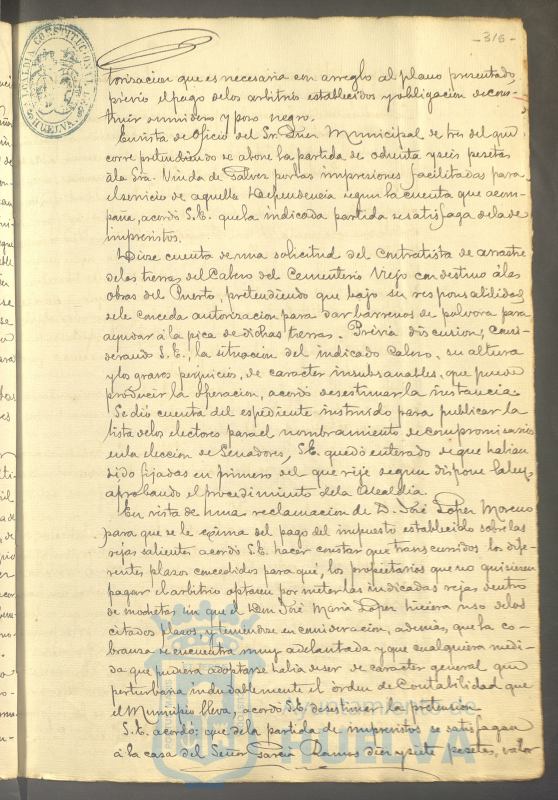 -316-
ALCALDIA CONSTITUCIONAL
HUELVA
torizacion que es necesaria con arreglo al plano presentado,
previo el pago de los arbitrios establecidos y obligacion de cons-
truir sumidero y pozo negro.
En vista de Oficio del Sr. Juez Municipal de tres del que
corre pretendiendo se abone la partida de ochenta y seis pesetas
á la Sra. Viuda de por las impresiones facilitadas para
el servicio de aquella Dependencia segun la cuenta que acom-
paña, acordó S.E. que la indicada partida se satisfaga de la de
imprevistos.
Diose cuenta de una solicitud del contratista de arrastre
de las tierras del Cabezo del Cementerio Viejo con destino á las
obras del Puerto, pretendiendo que bajo su responsabilidad
se le conceda autorizacion para dar barrenos de polvora para
ayudar á la pica de dichas tierras. Previa discusion, consi-
derando S.E., la situacion del indicado Cabezo, su altura
y los graves perjuicios, de caracter insubsanables, que puede
producir la operacion, acordó desestimar la instancia.
Se dió cuenta del espediente instruido para publicar la
lista de los electores para el nombramiento de compromisarios
en la eleccion de Senadores, S.E. quedó enterado de que habian
sido fijadas en primero del que rije segun dispone la ley,
aprobando el procedimiento de la Alcaldia.
En vista de una reclamacion de D. José Lopez Moreno
para que se le exima del pago del impuesto establecido sobre las
rejas salientes acordó S.E. hacer constar que transcurridos los dife-
rentes plazos concedidos para qué, los propietarios que no quisieren
pagar el arbitrio optasen por meter las indicadas rejas dentro
de mochetas sin que el Don José Maria Lopez hiciera uso de los
citados plazos, y teniendose en consideracion, ademas, que la co-
branza se encuentra muy adelantada y que cualquiera medi-
da que pudiera adoptarse habia de ser de caracter general que
perturbaria indudablemente el órden de Contabilidad que
el Municipio lleva, acordó S.E. desestimar la pretension
S.E. acordó; que de la partida de imprevistos se satisfagan
á la casa del Señor Garcia Ramos diez y siete pesetas, valor
HUELVA